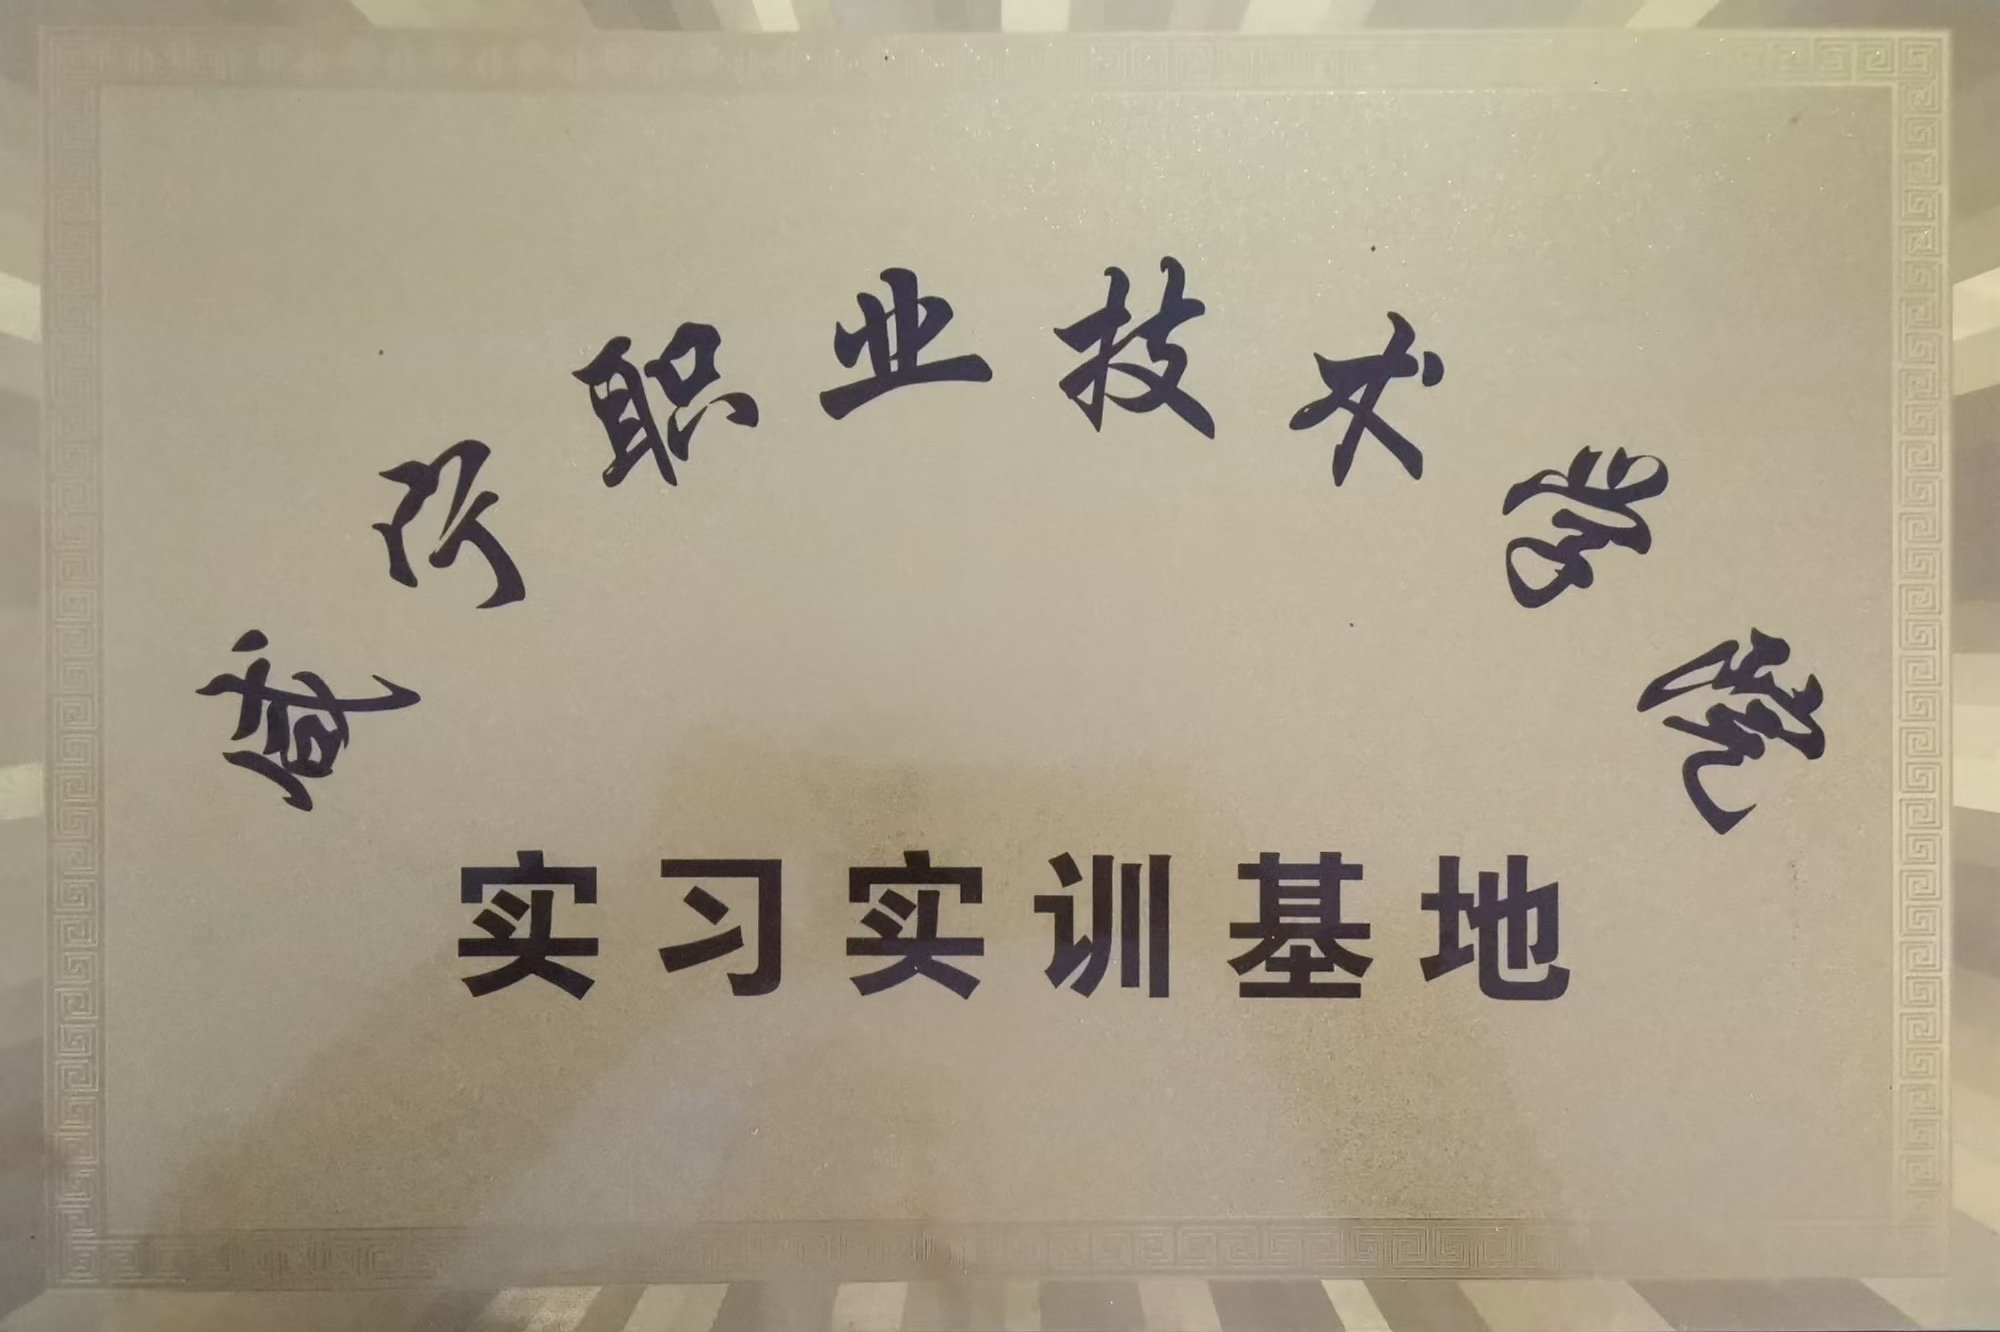 咸宁职业技术学院
实习实训基地